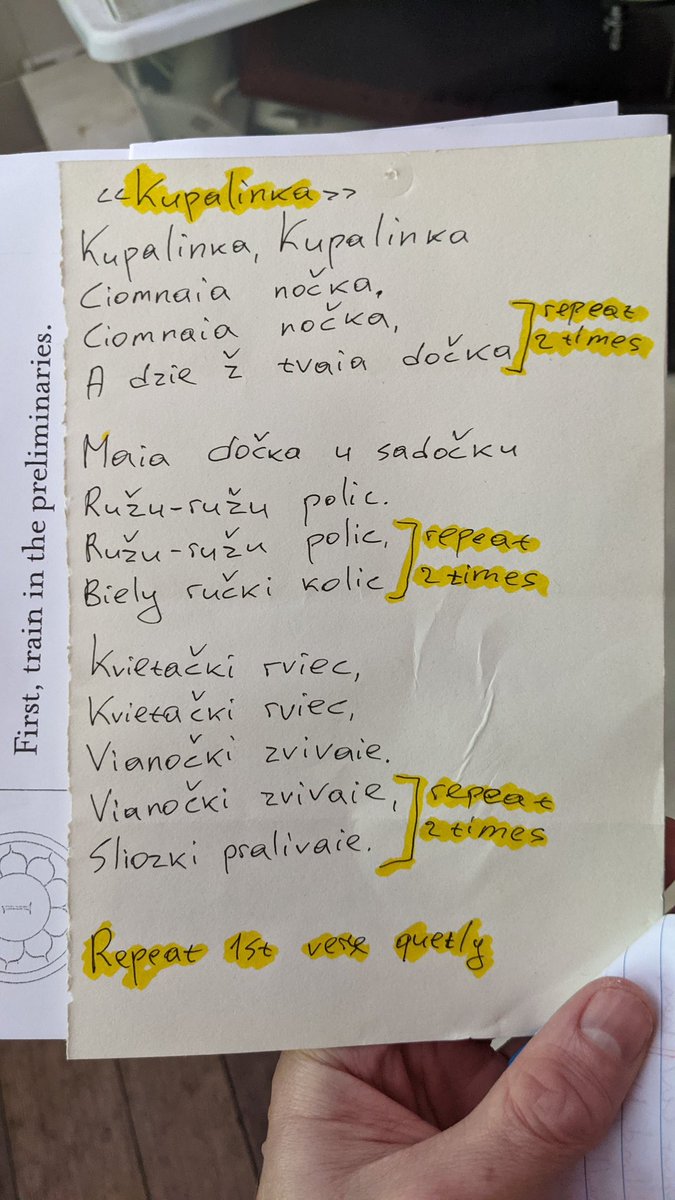 <<Kupalinka>>
Kupalinka, Kupalinka
Ciomnaia nočka,
Ciomnaia nočka,
A dzie ž tvaia dočka
repeat
2 times
Maia dočka u sadočku
Ružu-ružu polic.
Ružu-ružu polic,
Biely ručki kolic
repeat
2 times
Kvietački rviec,
Kvietački rviec,
Vianočki zvivaie.
Vianočki zvivaie,
Sliozki pralivaie.
repeat
2 times
Repeat 1st quetly
First, train in the preliminaries.
1